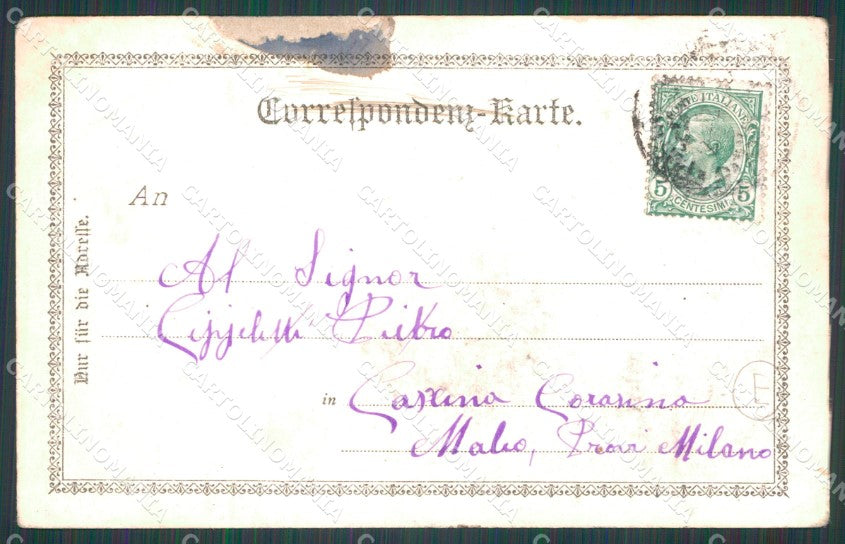 Correspondenz-Karte.
POSTE ITALIANE
5 CENTESIMI 5
An
Nur für die Adresse.
Al Signor
Pietro
in Cascina
Prov Milano
E
CARTOLINOMANIA